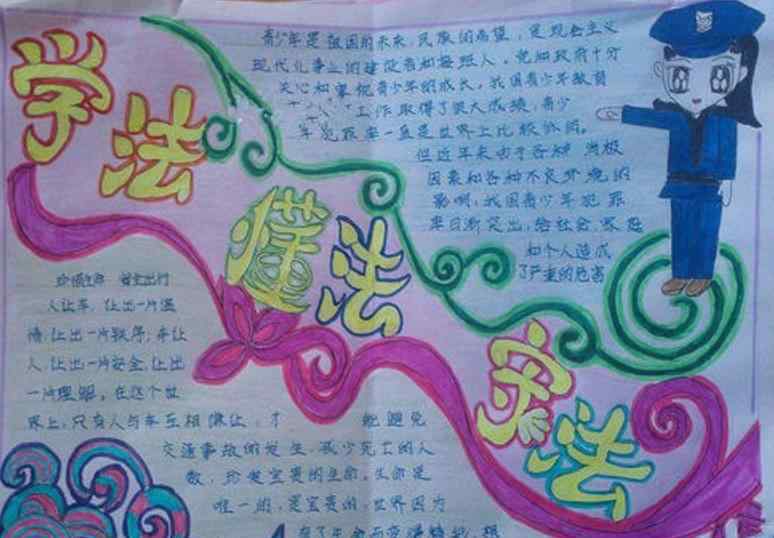 学法
懂法
守法
青少年是祖国的未来,民族的希望,是现会主义
现代化事业的建设者和接班人。党和政府十分
关心和重视青少年的成长。我国青少年教育
工作取得了很大成绩,青少
年犯罪率一直是世界上比较低的。
但近年来由于各种 消极
因素和各种不良环境的
影响,我国青少年犯罪
率日渐突出,给社会、家庭
和个人造成
了严重的危害
珍惜生命 安全出行
人让车,让出一片温
情;让出一片秩序;车让
人,让出一片安全,让出
一片理解。在这个世
界上,只有人与车互相谦让,才 能避免
交通事故的发生,减少死亡的人
数,珍爱宝贵的生命。生命是
唯一的,是宝贵的,世界因为
有了生命而变得精彩,